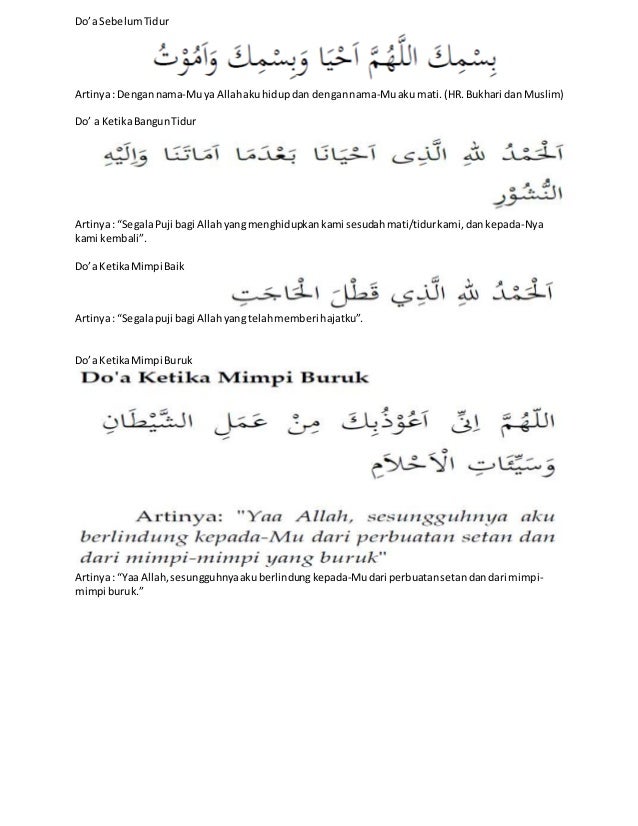 Do’a Sebelum Tidur
بِسْمِكَ اللَّهُمَّ اَحْيَا وَبِسْمِكَ وَاَمُوْتُ
Artinya : Dengan nama-Mu ya Allah aku hidup dan dengan nama-Mu aku mati. (HR. Bukhari dan Muslim)
Do’ a Ketika Bangun Tidur
اَلْحَمْدُ لِلّٰهِ الَّذِى اَحْيَانَا بَعْدَمَا اَمَاتَنَا وَاِلَيْهِ
النُّشُوْرِ
Artinya : “Segala Puji bagi Allah yang menghidupkan kami sesudah mati/tidur kami, dan kepada-Nya
kami kembali”.
Do’a Ketika Mimpi Baik
اَلْحَمْدُ لِلّٰهِ الَّذِي قَطْلَ الْحَاجَتِ
Artinya : “Segala puji bagi Allah yang telah memberi hajatku”.
Do’a Ketika Mimpi Buruk
Do'a Ketika Mimpi Buruk
اللّٰهُمَّ اِنِّى اَعُوْذُبِكَ مِنْ عَمَلِ الشَّيْطَانِ
وَسَيِّئَاتِ الْاَحْلاَمِ
Artinya: "Yaa Allah, sesungguhnya aku
berlindung kepada-Mu dari perbuatan setan dan
dari mimpi-mimpi yang buruk"
Artinya : “Yaa Allah, sesungguhnya aku berlindung kepada-Mu dari perbuatan setan dan dari mimpi-
mimpi buruk.”